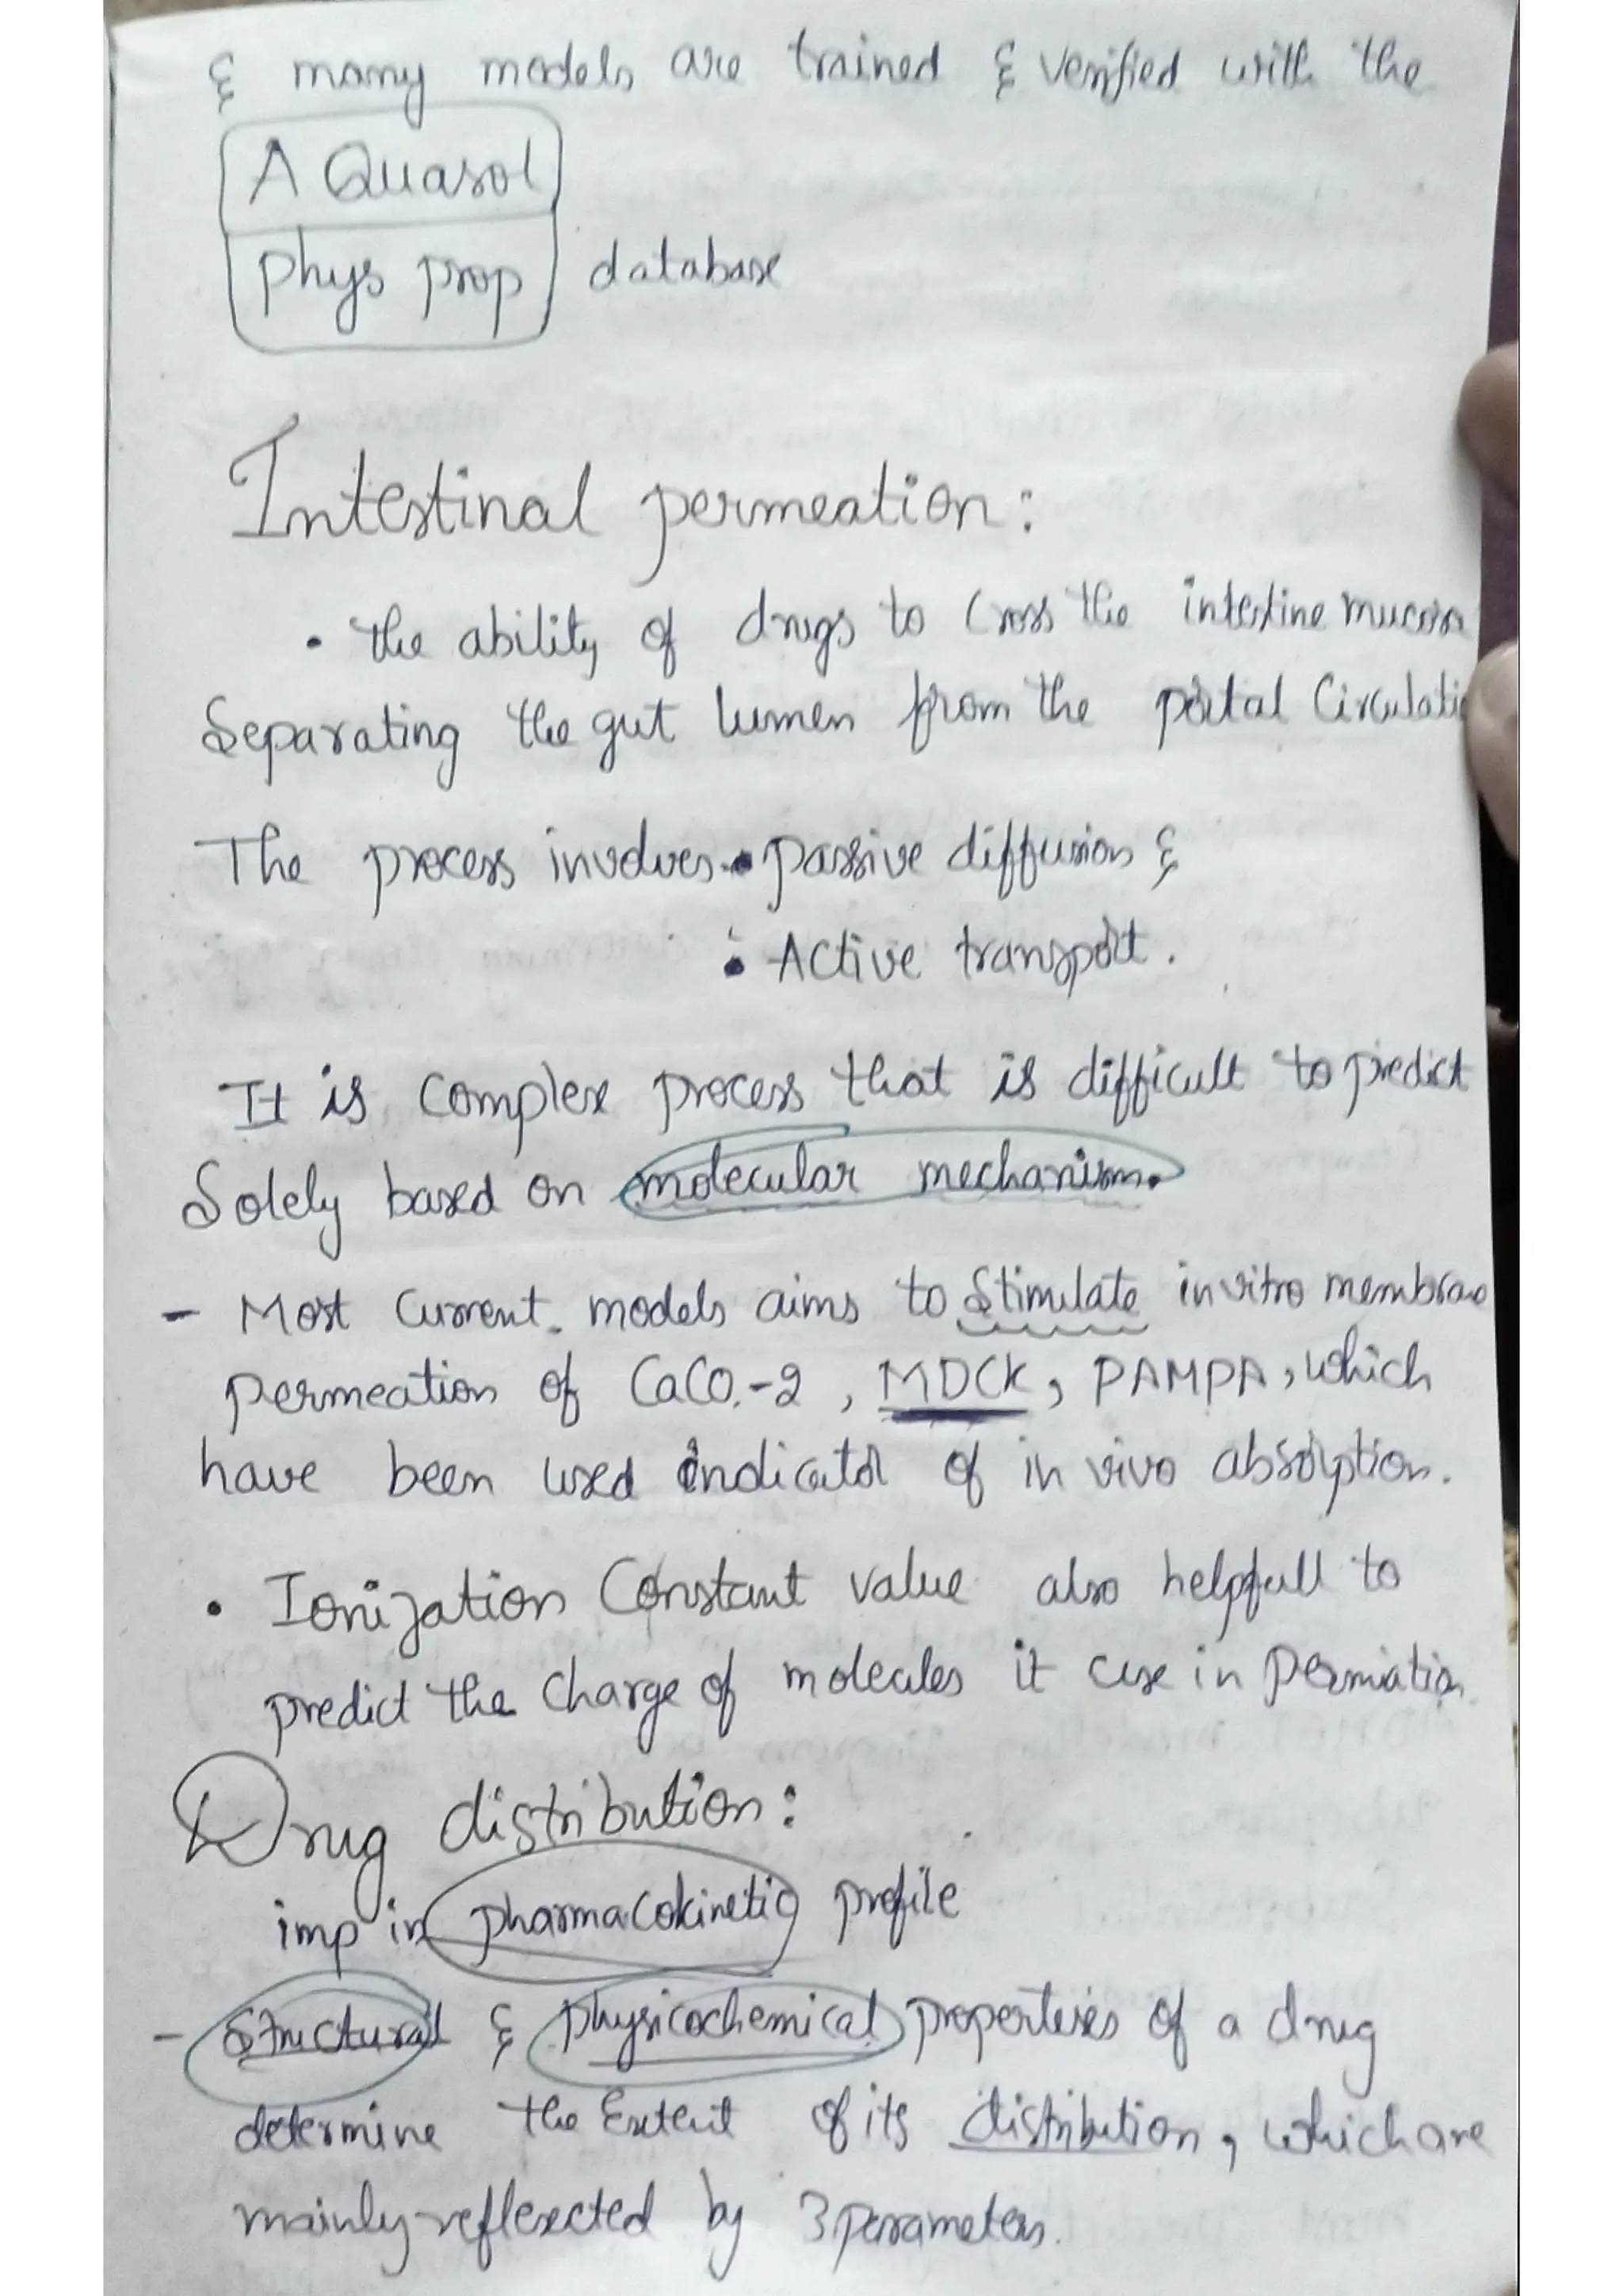 & many models are trained & verified with the
A Quasol
phys prop database
Intestinal permeation:
• the ability of drugs to Cross the intestine mucosa
Separating the gut lumen from the portal Circulatio
The process involves • passive diffusion &
• Active transport.
It is complex process that is difficult to predict
Solely based on molecular mechanism.
- Most Current models aims to Stimulate invitro membrane
permeation of CaCO-2, MDCK, PAMPA, which
have been used indicator of in vivo absorption.
• Ionization Constant value also helpfull to
predict the charge of molecules it use in permiation
Drug distribution:
imp in pharmacokinetic profile
- Structural & physicochemical properteies of a drug
determine the Extent of its distribution, which are
mainly reflexcted by 3 parameters.